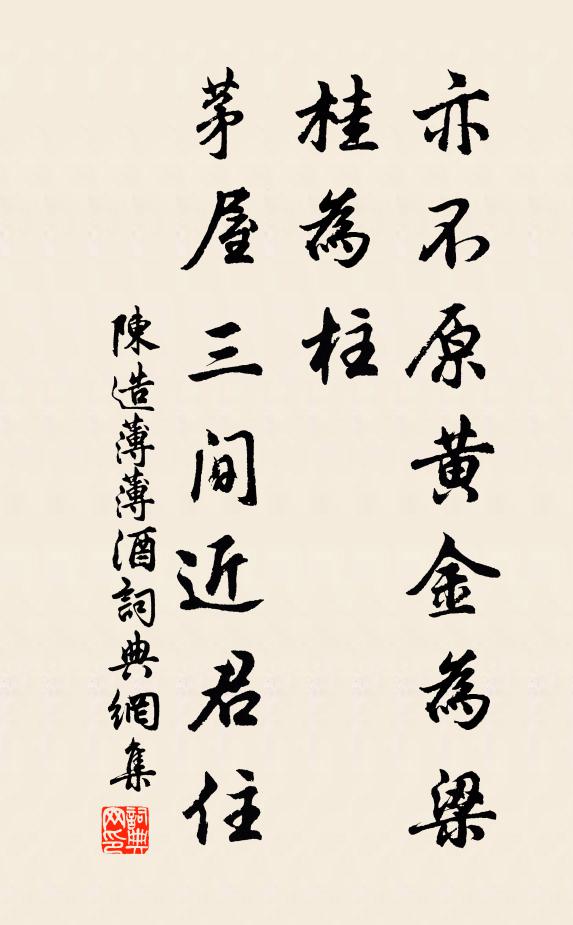 亦不原黄金為梁
桂為柱
茅屋三间近君住
陳造薄薄酒詞典網集
詞典网印